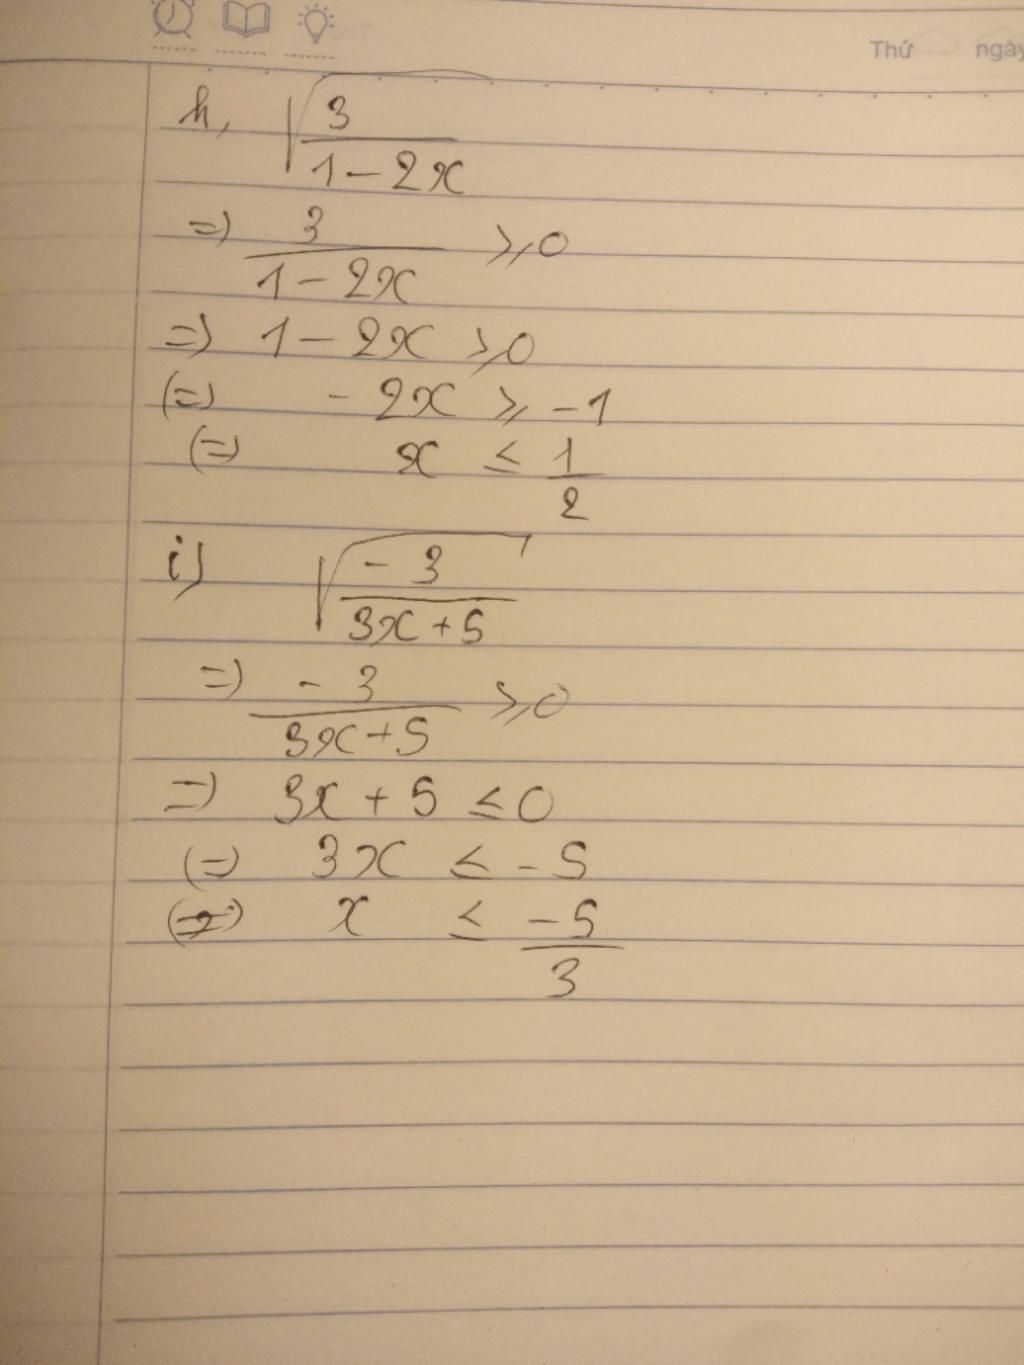 Thứ ngày
h, √(3/(1-2x))
=> 3/(1-2x) ≥ 0
=> 1-2x ≥ 0
(=) -2x ≥ -1
(=) x ≤ 1/2
i) √(-3/(3x+5))
=> -3/(3x+5) ≥ 0
=> 3x+5 ≤ 0
(=) 3x ≤ -5
(=) x ≤ -5/3